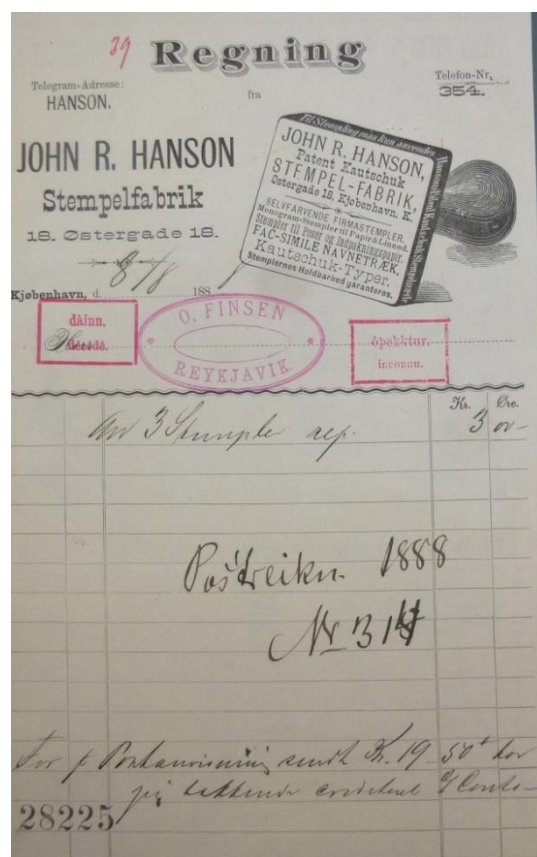 39
Regning
Telegram-Adresse:
HANSON.
fra
Telefon-Nr.
354.
JOHN R. HANSON
Stempelfabrik
18. Østergade 18.
Til Stempling maa kun anvendes
JOHN R. HANSON,
Patent Kautschuk
STEMPEL-FABRIK,
Østergade 18, Kjøbenhavn. K.
SELVFARVENDE FIRMASTEMPLER.
Monogram-Stempler til Papir & Linned.
Stempler til Poser og Indpakningspapir.
FAC-SIMILE NAVNETRÆK,
Kautschuk-Typer.
Stemplernes Holdbarhed garanteres.
Kjøbenhavn, d. 8/8 188
dáinn.
décédé.
O. FINSEN
REYKJAVIK
óþekktur.
inconnu.
Kr. Øre.
3 Stempler rep. 3
Póstreikn. 1888
Nr 314
For p Postanvisning sendt Kr. 19 50
jeg takkende crediteret Conto
28225